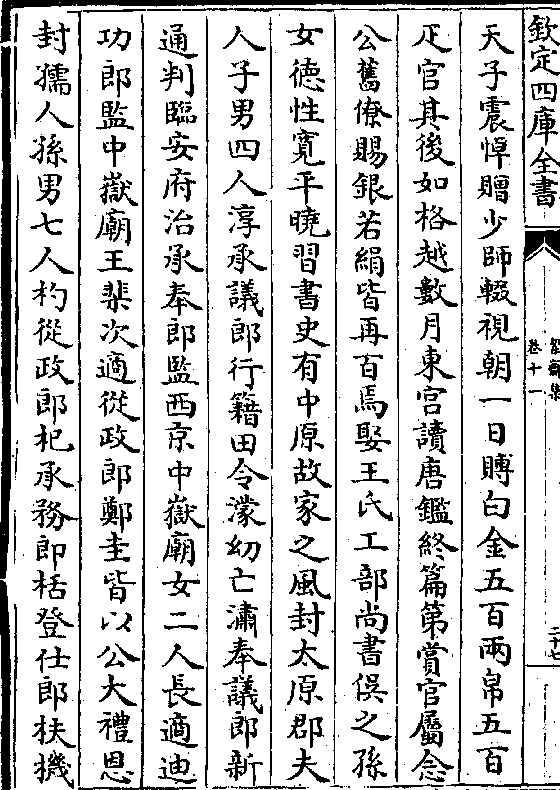 欽定四庫全書
卷十一
二十七
天子震悼贈少師輟視朝一日賻白金五百兩帛五百
疋官其後如格越數月東宮讀唐鑑終篇第賞官屬念
公舊僚賜銀若絹皆再百焉娶王氏工部尚書俁之孫
女徳性寛平曉習書史有中原故家之風封太原郡夫
人子男四人淳承議郎行籍田令濛幼亡潚奉議郎新
通判臨安府治承奉郎監西京中嶽廟女二人長適迪
功郎監中嶽廟王棐次適從政郎鄭圭皆以公大禮恩
封孺人孫男七人杓從政郎杞承務郎栝登仕郎扶機